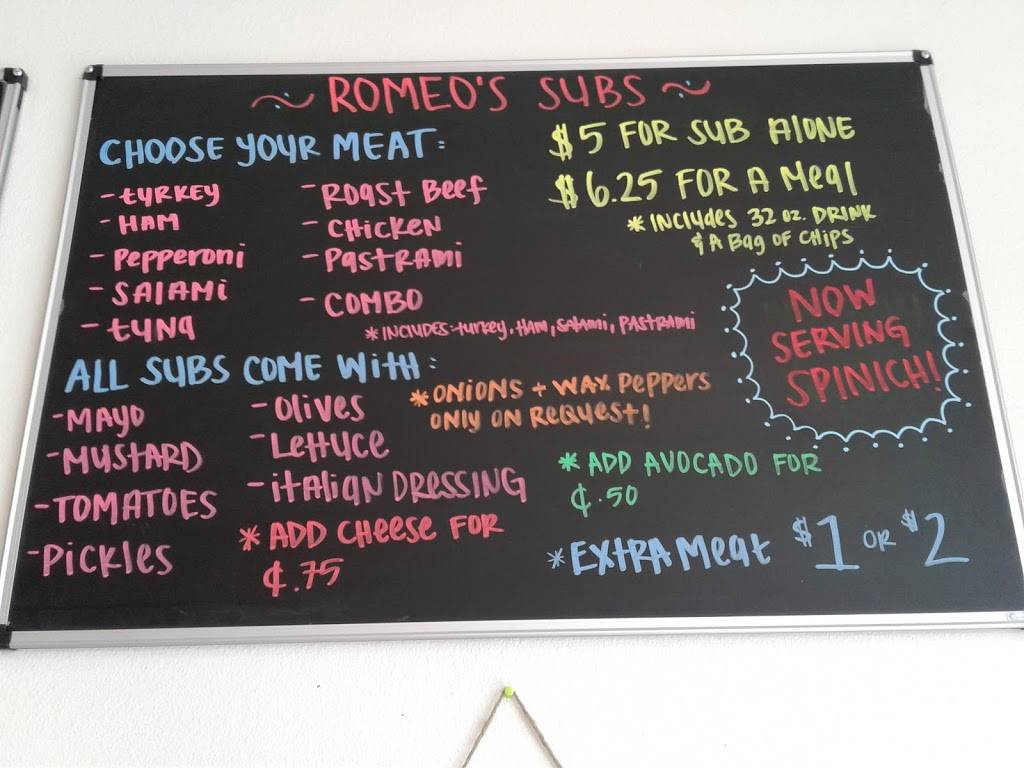 ~ ROMEO'S SUBS ~
CHOOSE YOUR MEAT:
- TURKEY
- HAM
- Pepperoni
- SALAMI
- TUNA
- ROAST Beef
- CHICKEN
- PASTRAMI
- COMBO
* INCLUDES: turkey, HAM, SALAMI, PASTRAMI
$5 FOR SUB ALONE
$6.25 FOR A MeAl
* INCLUDES 32 oz. DRINK
& A BAg OF CHIPS
NOW
SERVING
SPINICH!
ALL SUBS COME WITH:
- MAYO
- MUSTARD
- TOMATOES
- PICKLES
- OLIVES
- LETTUCE
- ITALIAN DRESSING
* ONIONS + WAX PEPPERS
ONLY ON REQUEST!
* ADD CHEESE FOR
¢.75
* ADD AVOCADO FOR
¢.50
* EXTRA MEAT $1 OR $2